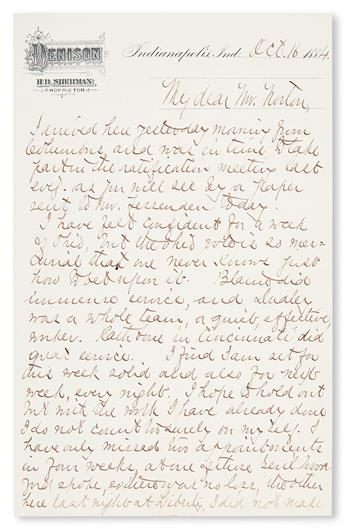 DENISON
H.B. SHERMAN,
PROPRIETOR
Indianapolis, Ind. Oct. 16 1884.
My dear Mr. Norton,
I arrived here yesterday morning from
Columbus, and was in time to take
part in the ratification meeting last
eve'g. as you will see by a paper
sent to Mr. Fessenden today.
I have felt confident for a week
of Ohio, but the Ohio vote is so mer-
curial that one never knows just
how to bet upon it. Blaine did
immense service, and Dudley
was a whole team, a quiet, effective
worker. Rathbone in Cincinnati did
great service. I find I am set for
this week solid and also for next
week, every night. I hope to hold out
but with the work I have already done
I do not count too surely on myself. I
have only missed two appointments
in four weeks, at one of these Gen'l
spoke, so there was no loss, the other
here last night at Liberty, I did not make